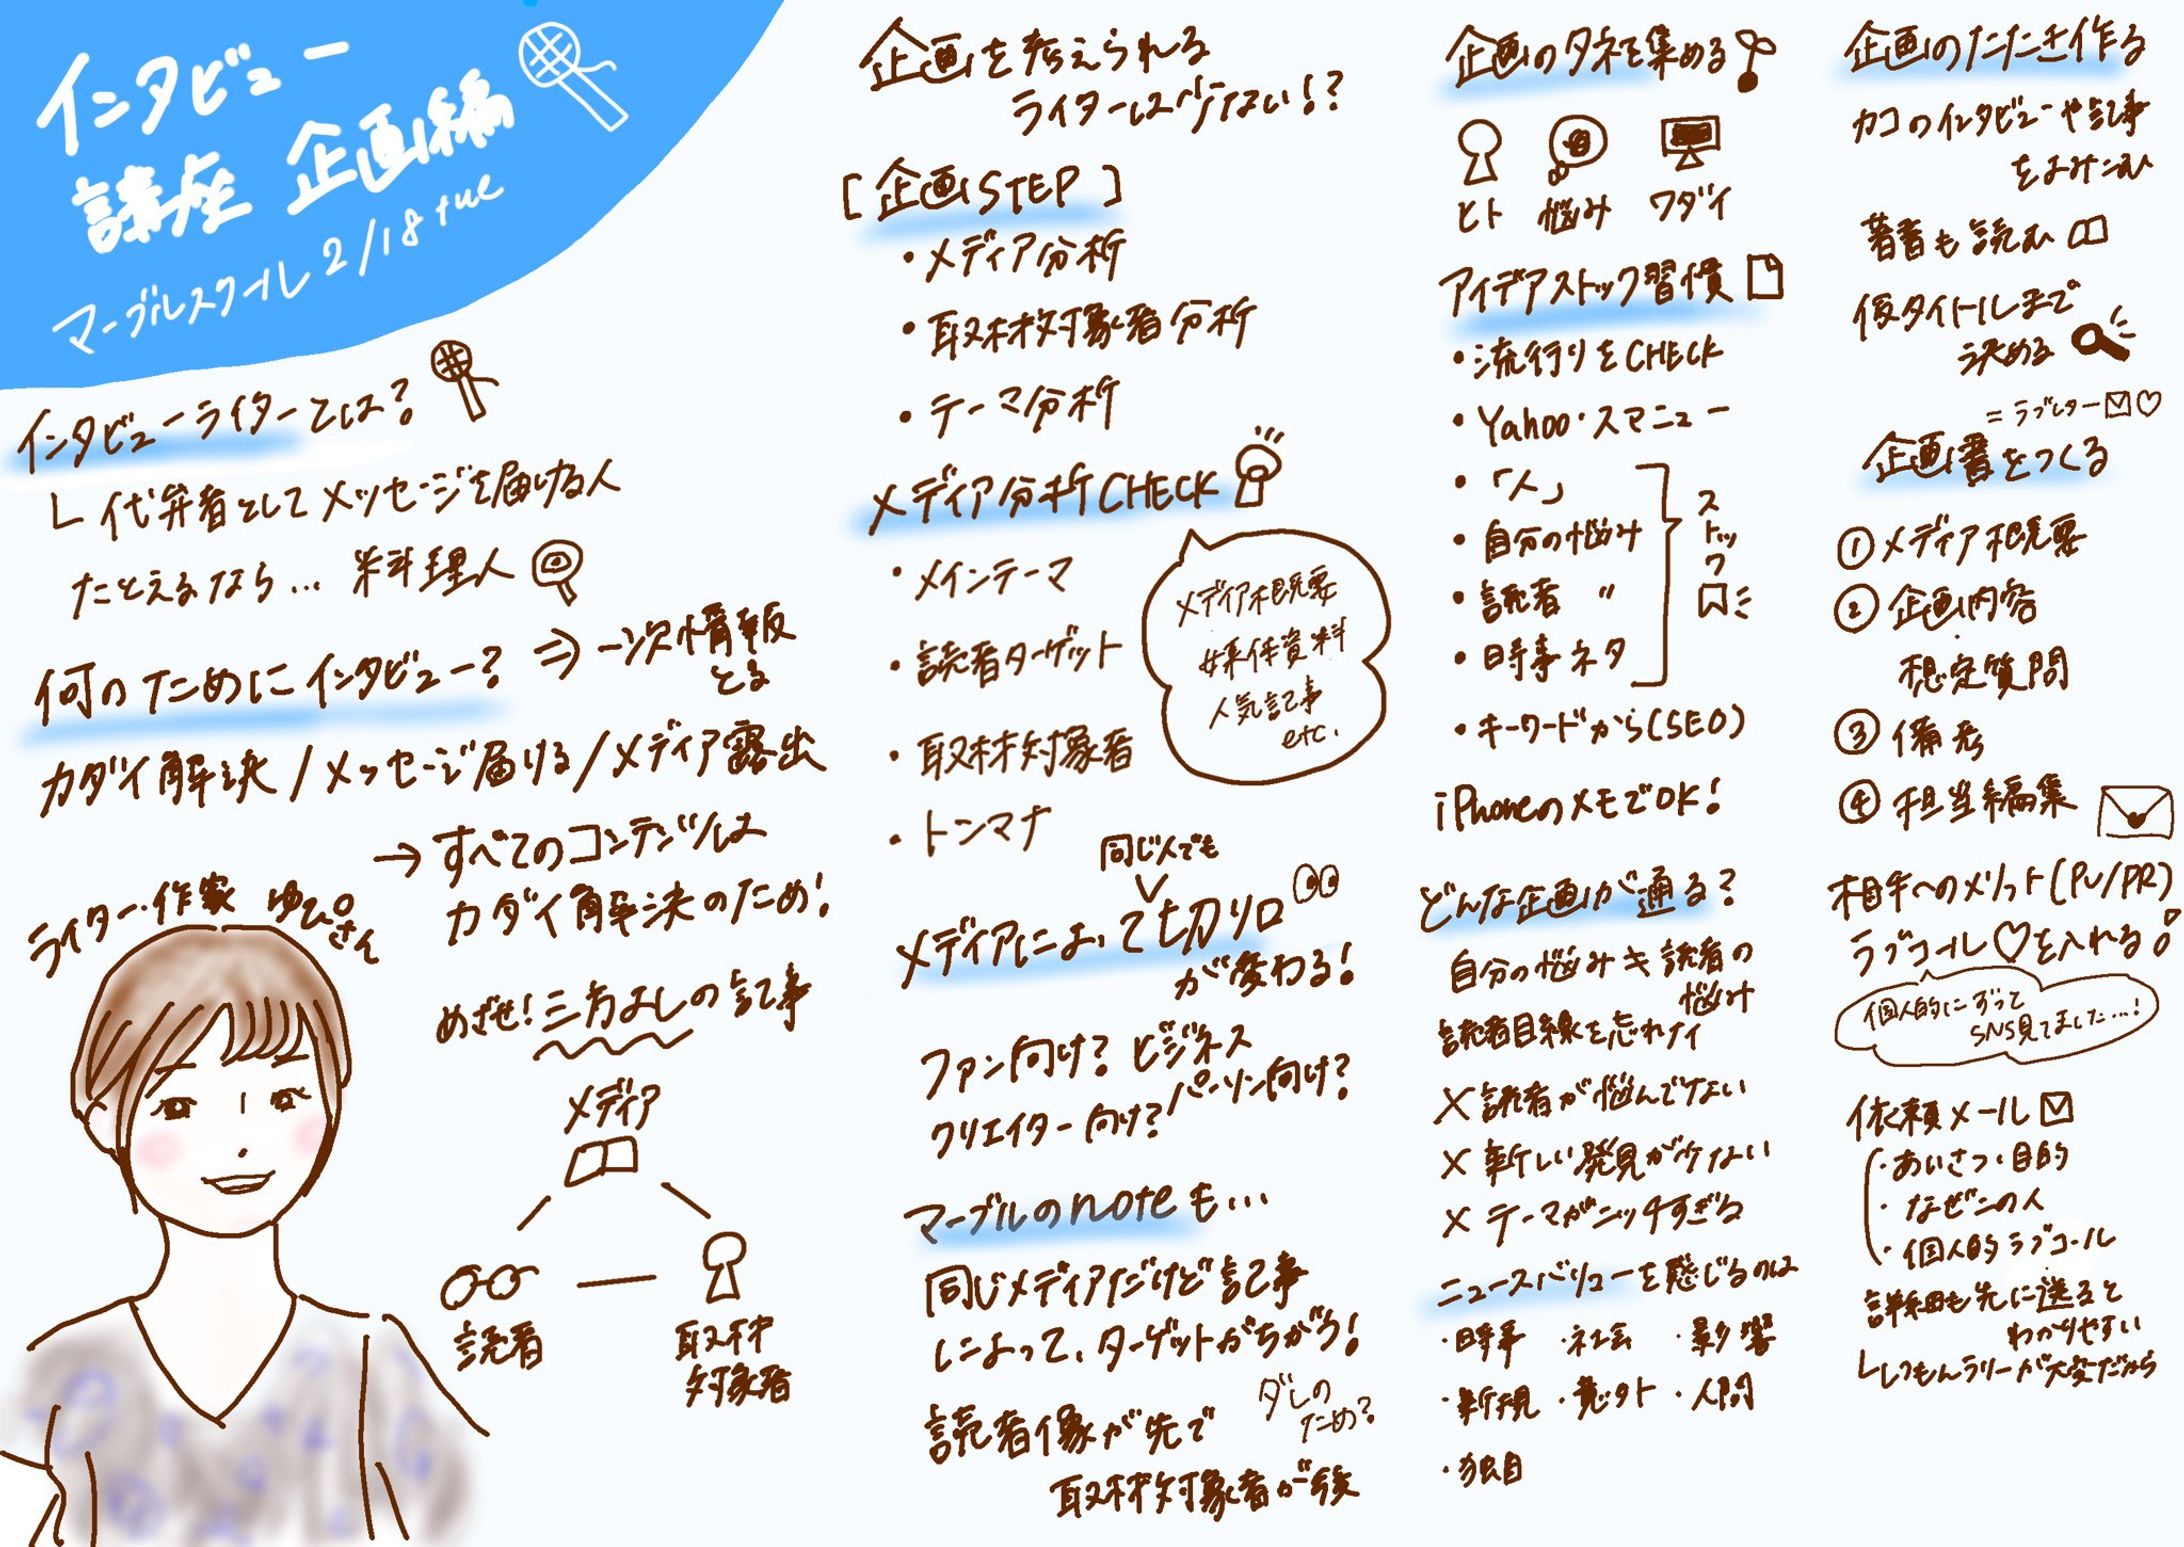 インタビュー
講座 企画編
マーブルスクール 2/18 tue
インタビューライターとは?
└ 代弁者としてメッセージを届ける人
たとえるなら… 料理人
何のためにインタビュー? ⇒ 一次情報
とる
カダイ解決/メッセージ届ける/メディア露出
→ すべてのコンテンツは
カダイ解決のため!
ライター・作家 ゆぴさん
めざせ! 三方よしの記事
メディア
読者
取材
対象者
企画を考えられる
ライターは少ない!?
[企画STEP]
・メディア分析
・取材対象者分析
・テーマ分析
メディア分析CHECK
・メインテーマ
・読者ターゲット
・取材対象者
・トンマナ
メディア概要
媒体資料
人気記事
etc.
同じ人でも
メディアによって切り口
が変わる!
ファン向け? ビジネス
パーソン向け?
クリエイター向け?
マーブルのnoteも…
同じメディアだけど記事
によって、ターゲットがちがう!
読者像が先で
ダレの
ため?
取材対象者が後
企画のタネを集める
ヒト 悩み ワダイ
アイデアストック習慣
・流行りをCHECK
・Yahoo・スマニュー
・「人」
・自分の悩み
・読者 〃
・時事ネタ
ストック
・キーワードから(SEO)
iPhoneのメモでOK!
どんな企画が通る?
自分の悩み≠読者の
悩み
読者目線を忘れナイ
× 読者が悩んでない
× 新しい発見が少ない
× テーマがニッチすぎる
ニュースバリューを感じるのは
・時事 ・社会 ・影響
・新規 ・意外 ・人間
・独自
企画のたたき作る
カコのインタビューや記事
をよみこみ
著書も読む
仮タイトルまで
決める
=ラブレター
企画書をつくる
① メディア概要
② 企画内容
想定質問
③ 備考
④ 担当編集
相手へのメリット(PV/PR)
ラブコール♡を入れる!
個人的にずって
SNS見てました…!
依頼メール
・あいさつ・目的
・なぜこの人
・個人的ラブコール
詳細も先に送ると
わかりやすい
└しつもんラリーが大変だから